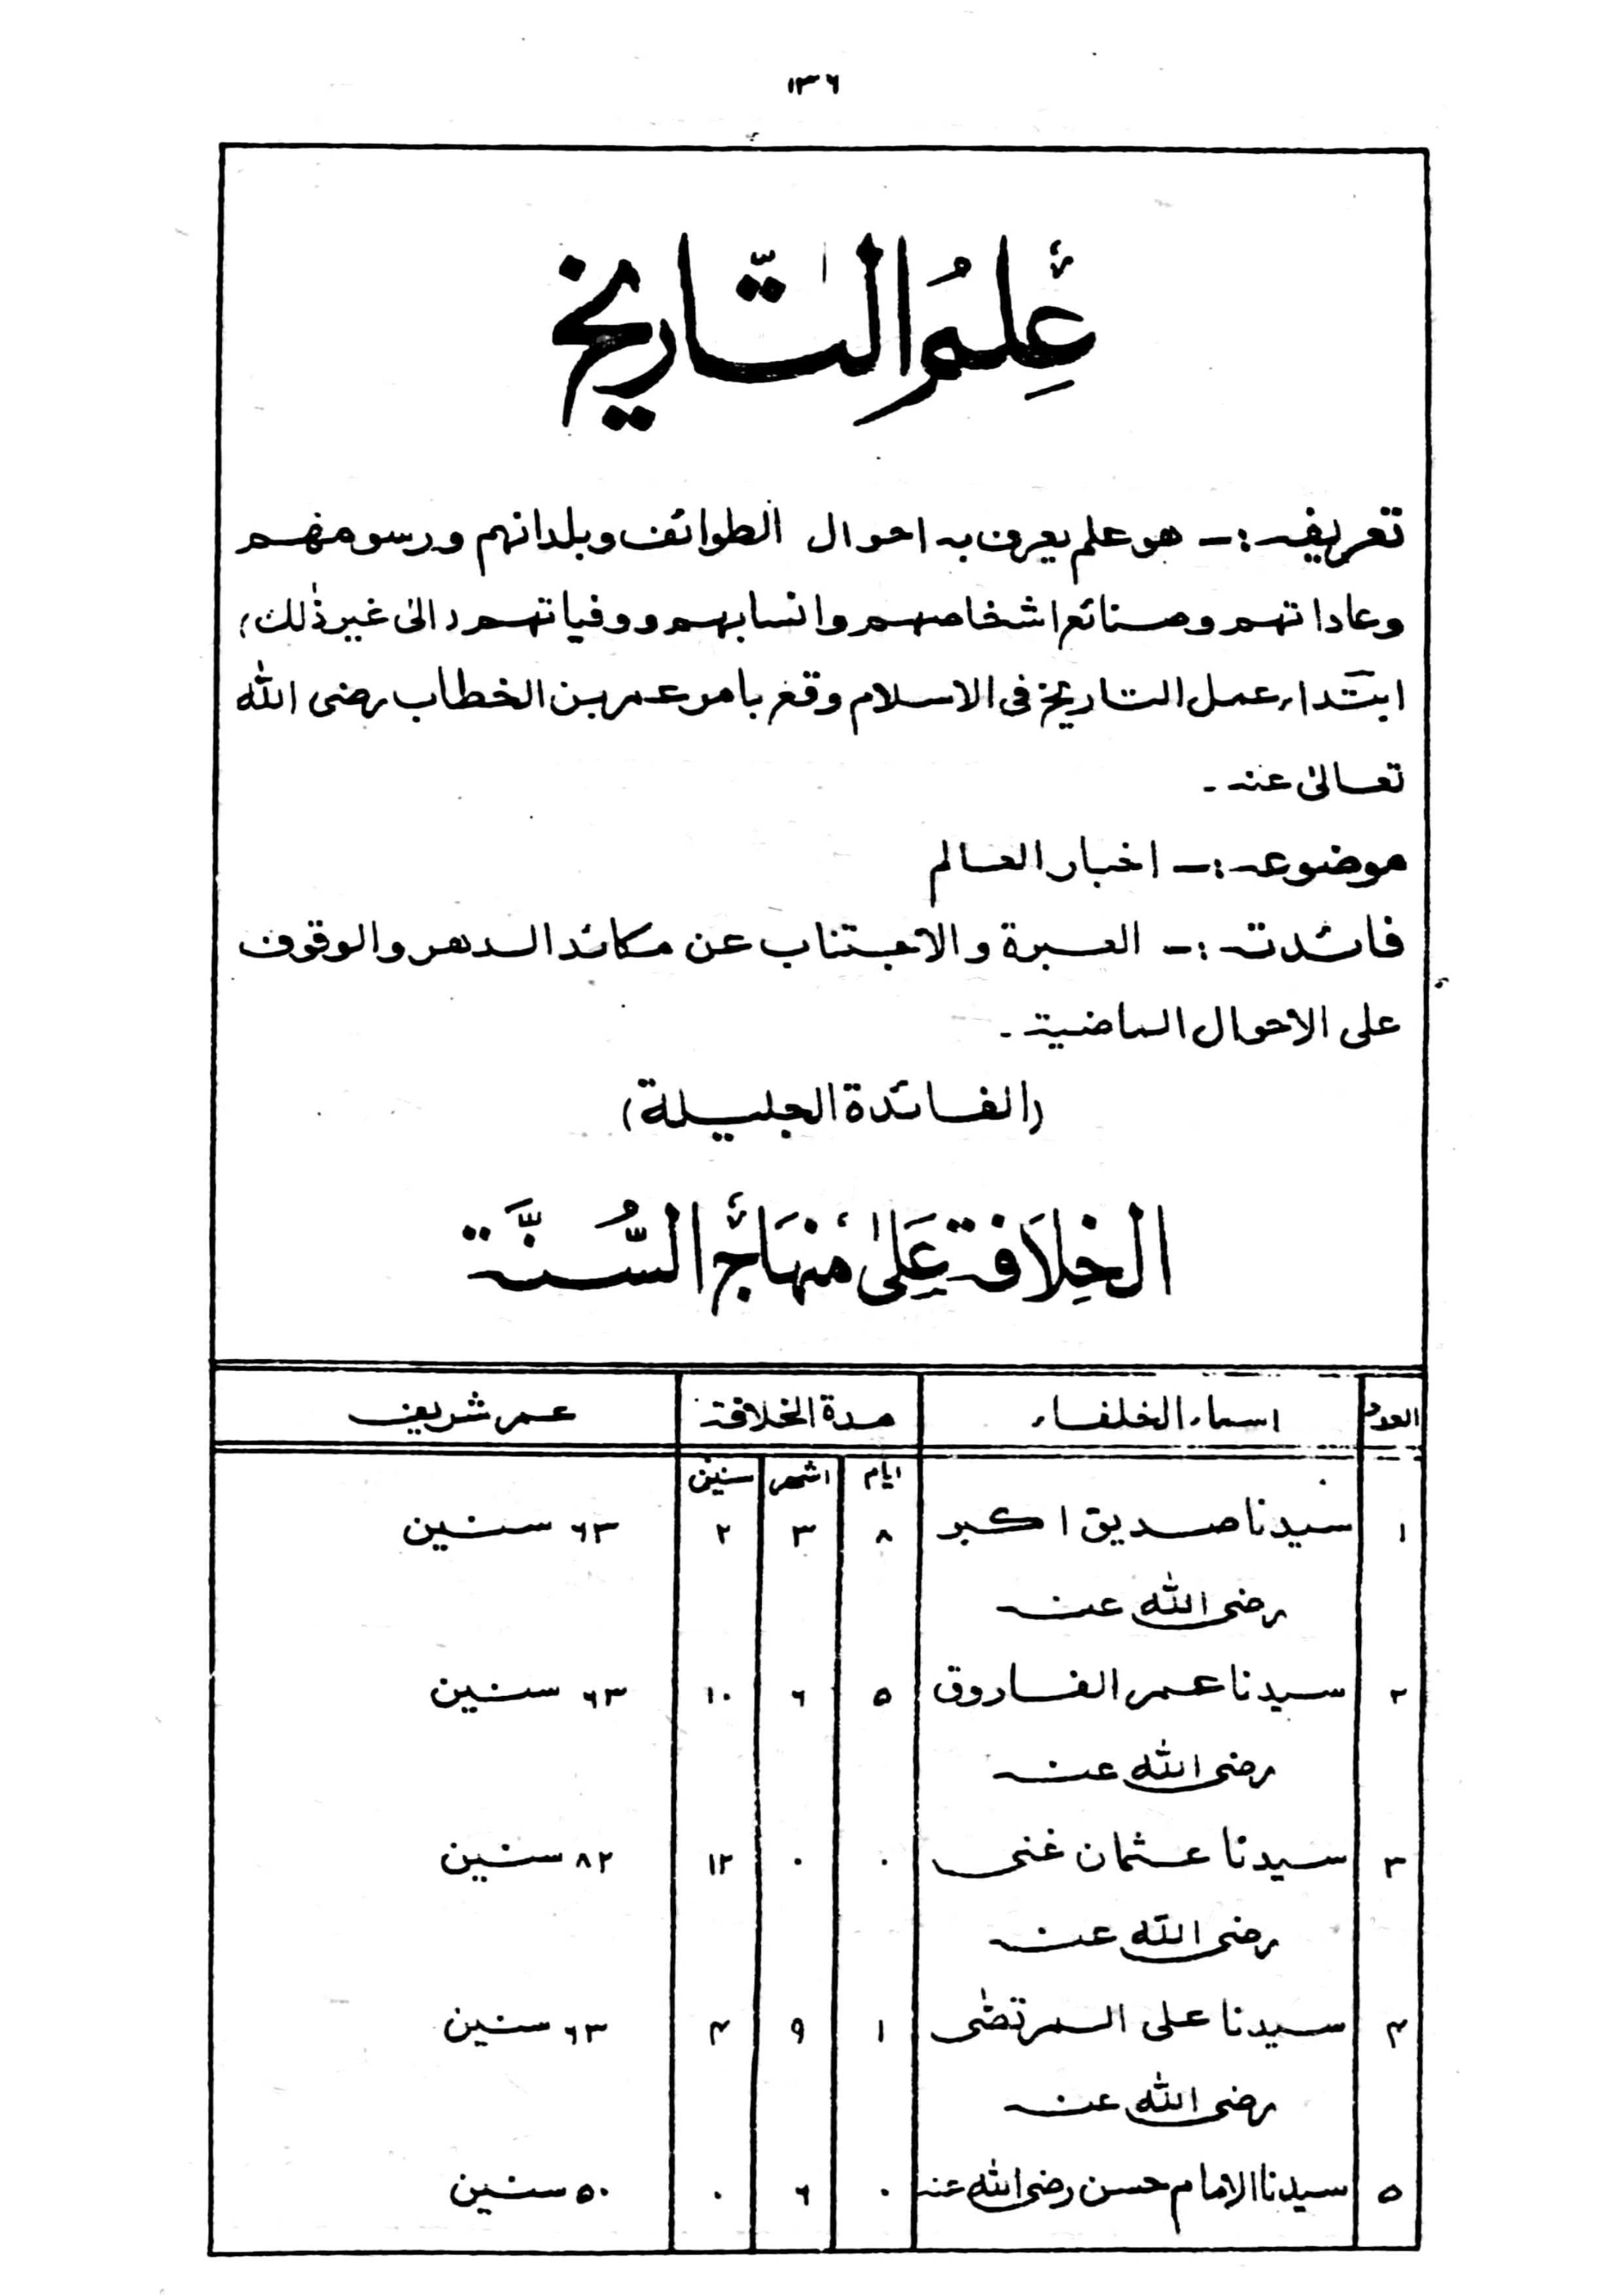 ١٣٦
عِلْمُ التَّارِيخ
تعریفہ :۔ ھو علم یعرف بہ احوال الطوائف وبلدانہم ورسومھم
وعاداتہم وصنائع اشخاصہم وانسابہم ووفیاتہم (الیٰ غیر ذٰلک)
ابتداء عمل التاریخ فی الاسلام وقع بامر عمر بن الخطاب رضی اللہ
تعالیٰ عنہ۔
موضوعہ :۔ اخبار العالم
فائدتہ :۔ العبرة والاجتناب عن مکائد الدھر والوقوف
علی الاحوال الماضیۃ۔
(الفائدة الجلیلة)
الخِلَافۃ عَلیٰ مِنہَاج السُّنَّۃ
العدد اسماء الخلفاء مدة الخلافۃ عمر شریف
ایام اشھر سنین
١ سیدنا صدیق اکبر ٨ ٣ ٢ ٦٣ سنین
رضی اللہ عنہ
٢ سیدنا عمر الفاروق ٥ ٦ ١٠ ٦٣ سنین
رضی اللہ عنہ
٣ سیدنا عثمان غنی ٠ ٠ ١٢ ٨٢ سنین
رضی اللہ عنہ
۴ سیدنا علی المرتضٰی ١ ٩ ۴ ٦٣ سنین
رضی اللہ عنہ
٥ سیدنا الامام حسن رضی اللہ عنہ ٠ ٦ ٠ ٥٠ سنین